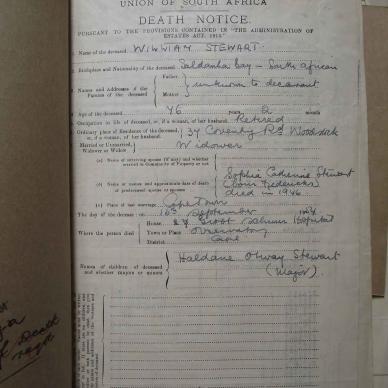 UNION OF SOUTH AFRICA
DEATH NOTICE.
PURSUANT TO THE PROVISIONS CONTAINED IN "THE ADMINISTRATION OF
ESTATES ACT, 1913."
Name of the deceased WILLIAM STEWART.
Birthplace and Nationality of the deceased Saldanha Bay - South African
Names and Addresses of the Parents of the deceased
Father
Mother
unknown to declarant
Age of the deceased 76 years 2 months
Occupation in life of deceased, or if a woman, of her husband. Retired
Ordinary place of Residence of the deceased, or, if a woman, of her husband. 34 Coventry Rd Woodstock
Married or Unmarried, Widower or Widow Widower
(a) Name of surviving spouse (if any) and whether married in Community of Property or not
(b) Name or names and approximate date of death of predeceased spouse or spouses
Sophia Catherine Stewart
died in 1946
(c) Place of last marriage Cape Town
The day of the decease on 16th September
Where the person died
House
Town or Place Observatory
District Cape
Names of children of deceased and whether majors or minors
Haldane Otway Stewart
(Major).